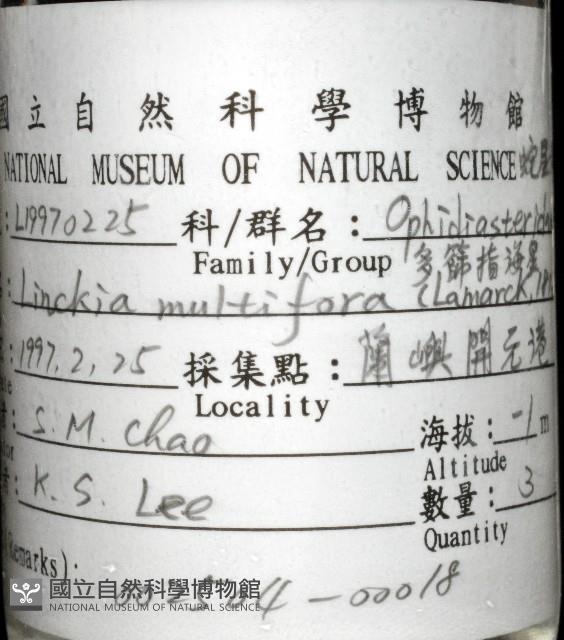 國立自然科學博物館
NATIONAL MUSEUM OF NATURAL SCIENCE
: L19970225 科/群名: Ophidiasterid
Family/Group 多篩指海星
: Linckia multifora (Lamarck,
: 1997.2,25 採集點: 蘭嶼開元港
Locality
: S.M. Chao 海拔: -1 m
Altitude
: K.S. Lee 數量: 3
Quantity
Remarks):
-00018
國立自然科學博物館
NATIONAL MUSEUM OF NATURAL SCIENCE